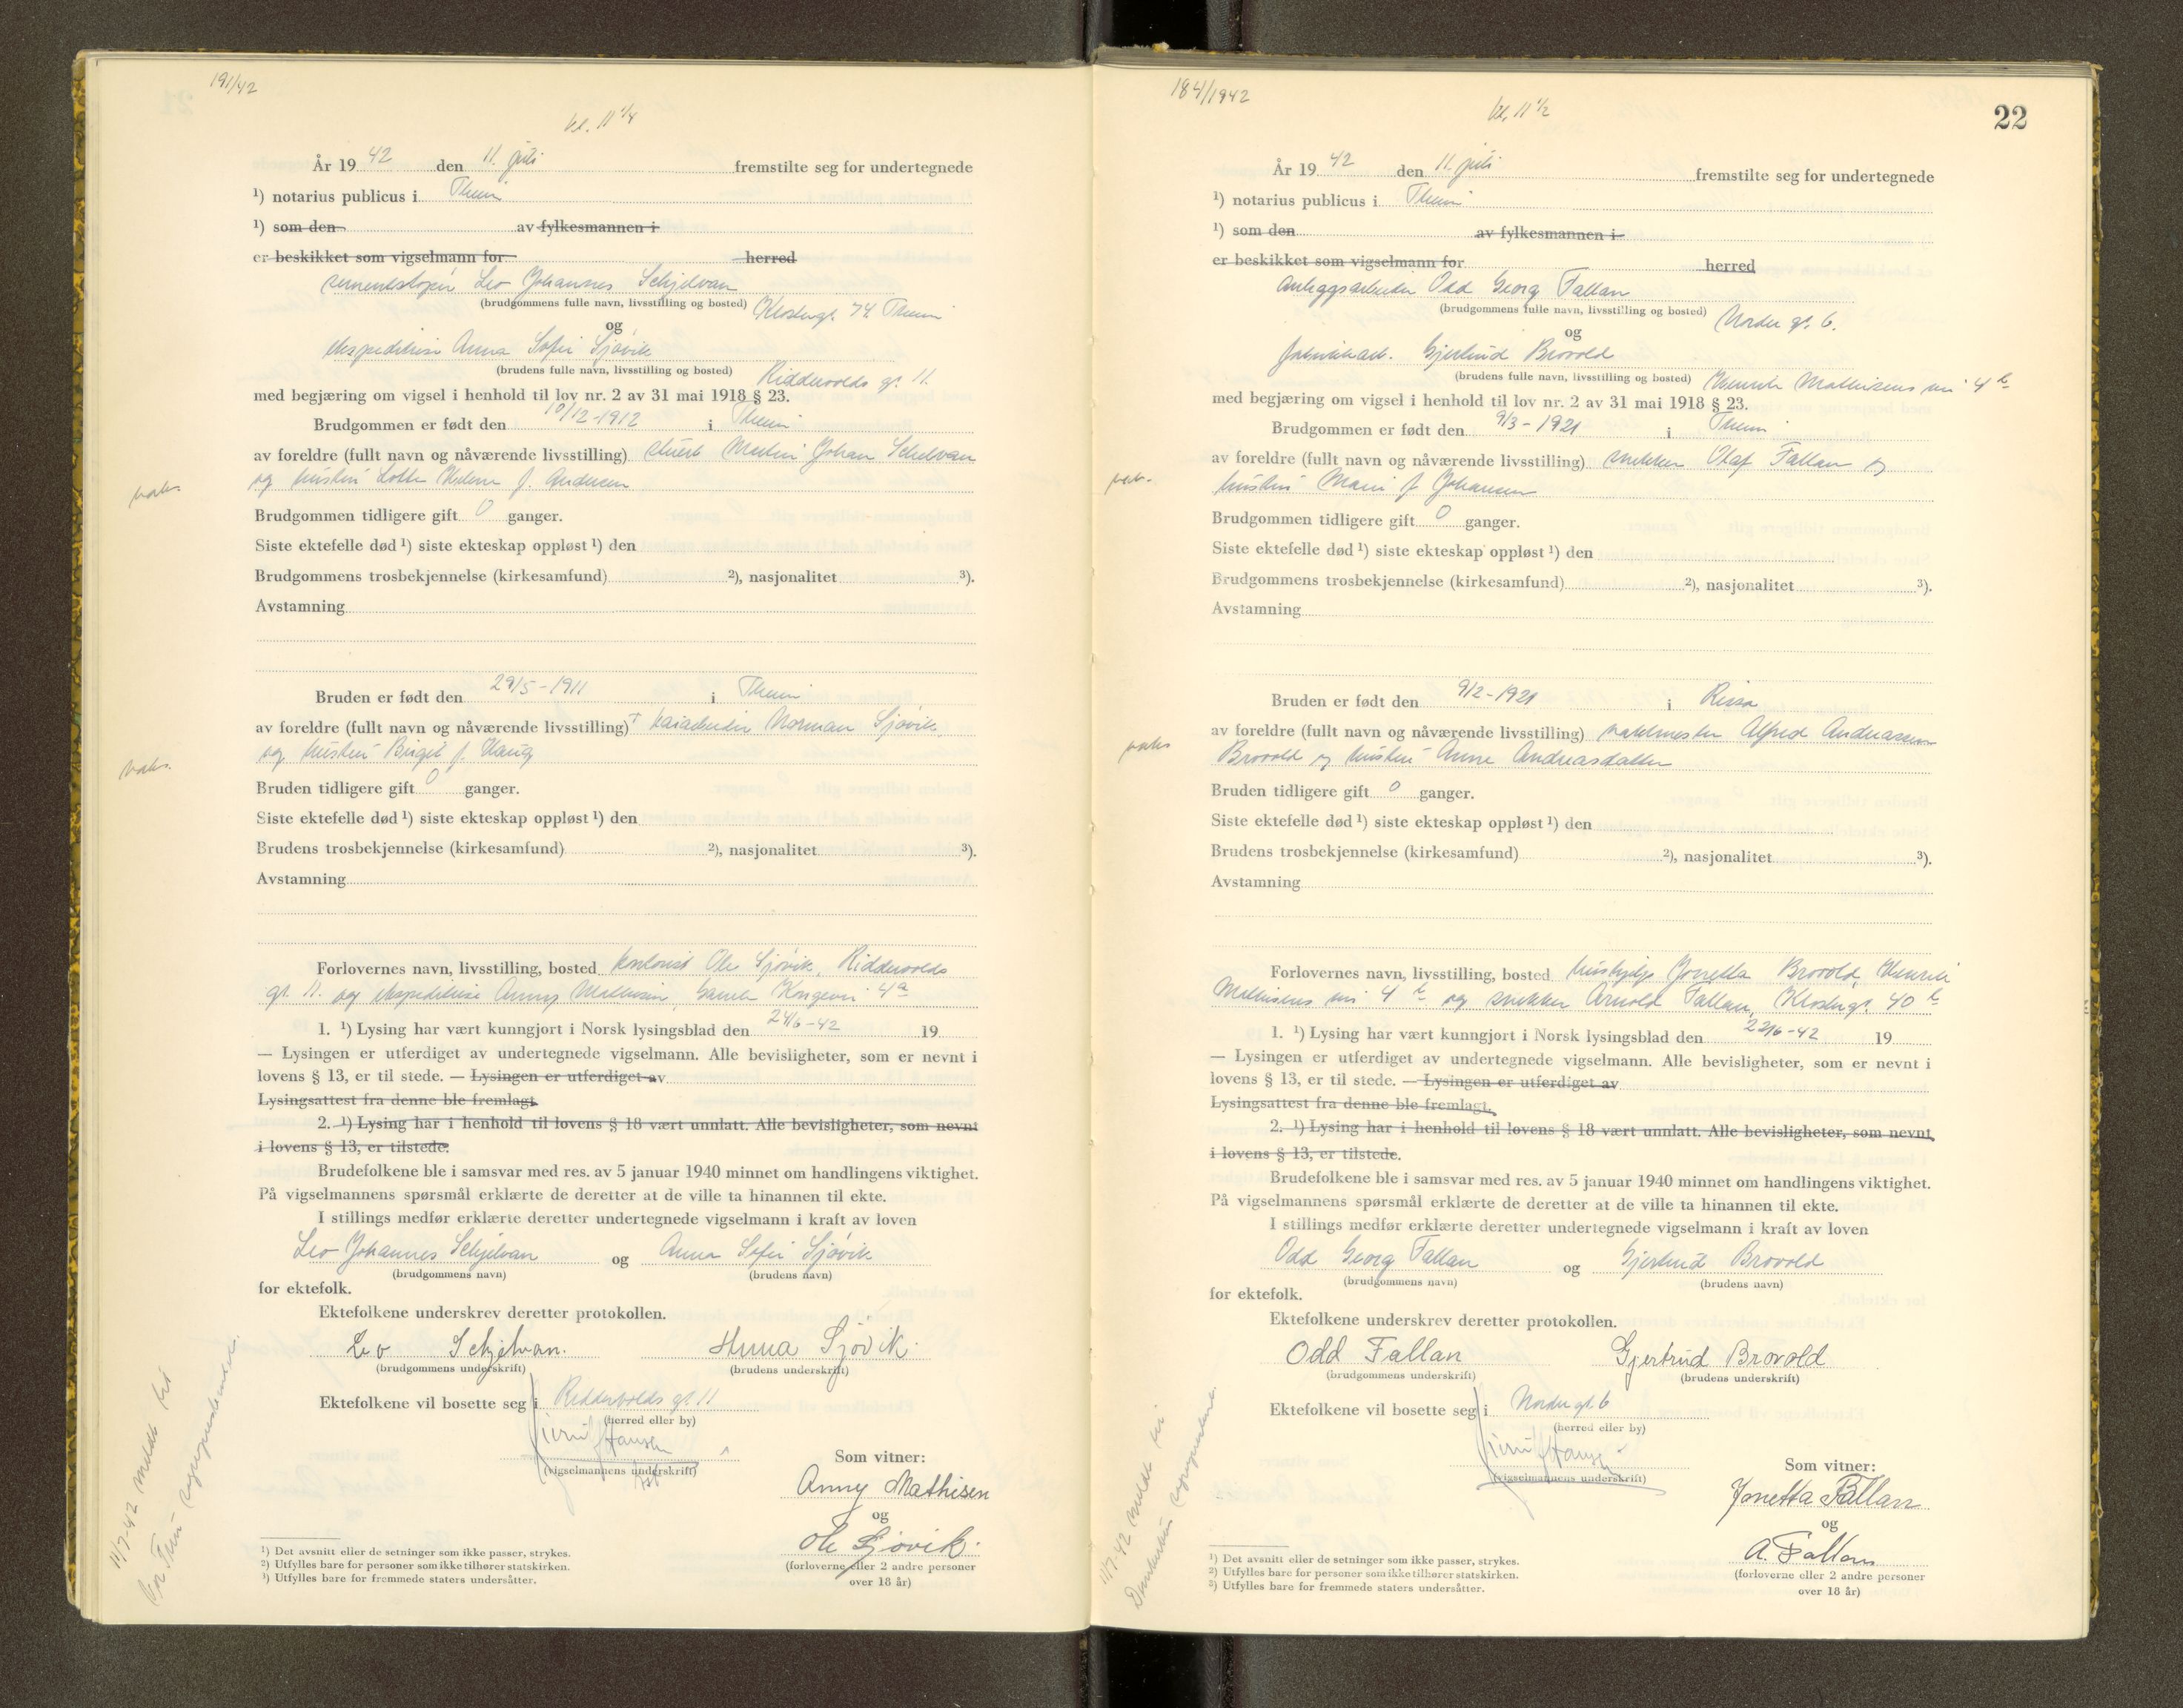 191/42
kl. 11 1/4
År 19 42 den 11. juli fremstilte seg for undertegnede
¹) notarius publicus i Theim
¹) som den av fylkesmannen i
er beskikket som vigselmann for herred
sementstøper Leo Johannes Schjelvan
(brudgommens fulle navn, livsstilling og bosted) Klostergt. 74 Theim
og
ekspeditrise Anna Sofie Sjøvik
(brudens fulle navn, livsstilling og bosted) Ridderolds gt. 11.
med begjæring om vigsel i henhold til lov nr. 2 av 31 mai 1918 § 23.
Brudgommen er født den 10/12-1912 i Theim
av foreldre (fullt navn og nåværende livsstilling) Martin Johan Schelvan
og hustru Helene f. Andersen
vaks.
Brudgommen tidligere gift 0 ganger.
Siste ektefelle død ¹) siste ekteskap oppløst ¹) den
Brudgommens trosbekjennelse (kirkesamfund) ²), nasjonalitet ³).
Avstamning
Bruden er født den 29/5-1911 i Theim
av foreldre (fullt navn og nåværende livsstilling) + kaiarbeider Norman Sjøvik
og hustru Birgit f. Haug
vaks.
Bruden tidligere gift 0 ganger.
Siste ektefelle død ¹) siste ekteskap oppløst ¹) den
Brudens trosbekjennelse (kirkesamfund) ²), nasjonalitet ³).
Avstamning
Forlovernes navn, livsstilling, bosted kontorist Ole Sjøvik, Ridderolds
gt. 11. og ekspeditrise Anny Mathisen, Gamle Kongevei 4a
1. ¹) Lysing har vært kunngjort i Norsk lysingsblad den 24/6-42 19
— Lysingen er utferdiget av undertegnede vigselmann. Alle bevisligheter, som er nevnt i
lovens § 13, er til stede. — Lysingen er utferdiget av
Lysingsattest fra denne ble fremlagt.
2. ¹) Lysing har i henhold til lovens § 18 vært unnlatt. Alle bevisligheter, som nevnt
i lovens § 13, er tilstede.
Brudefolkene ble i samsvar med res. av 5 januar 1940 minnet om handlingens viktighet.
På vigselmannens spørsmål erklærte de deretter at de ville ta hinannen til ekte.
I stillings medfør erklærte deretter undertegnede vigselmann i kraft av loven
Leo Johannes Schjelvan og Anna Sofie Sjøvik
(brudgommens navn) (brudens navn)
for ektefolk.
Ektefolkene underskrev deretter protokollen.
Leo Schjelvan. Anna Sjøvik.
(brudgommens underskrift) (brudens underskrift)
Ektefolkene vil bosette seg i Ridderolds gt 11
(herred eller by)
Hansen
(vigselmannens underskrift)
Som vitner:
Anny Mathisen
og
Ole Sjøvik.
(forloverne eller 2 andre personer
over 18 år)
11/7-42 meldt til
¹) Det avsnitt eller de setninger som ikke passer, strykes.
²) Utfylles bare for personer som ikke tilhører statskirken.
³) Utfylles bare for fremmede staters undersåtter.
184/1942
kl. 11 1/2
22
År 19 42 den 11. juli fremstilte seg for undertegnede
¹) notarius publicus i Theim
¹) som den av fylkesmannen i
er beskikket som vigselmann for herred
Anleggsarbeider Odd Georg Fallan
(brudgommens fulle navn, livsstilling og bosted) Nordre gt. 6.
og
fabrikkarb. Gjertrud Brovold
(brudens fulle navn, livsstilling og bosted) Henrik Mathisens vei 4 b
med begjæring om vigsel i henhold til lov nr. 2 av 31 mai 1918 § 23.
Brudgommen er født den 9/3-1921 i Theim
av foreldre (fullt navn og nåværende livsstilling) snekker Olaf Fallan og
hustru Marie f. Johansen
Brudgommen tidligere gift 0 ganger.
Siste ektefelle død ¹) siste ekteskap oppløst ¹) den
Brudgommens trosbekjennelse (kirkesamfund) ²), nasjonalitet ³).
Avstamning
Bruden er født den 9/2-1921 i Rissa
av foreldre (fullt navn og nåværende livsstilling) vaktmester Alfred Andreassen
Brovold og hustru Anne Andreasdatter
vaks
Bruden tidligere gift 0 ganger.
Siste ektefelle død ¹) siste ekteskap oppløst ¹) den
Brudens trosbekjennelse (kirkesamfund) ²), nasjonalitet ³).
Avstamning
Forlovernes navn, livsstilling, bosted hushjelp Jonetta Brovold, Henrik
Mathisens vei 4 b og snekker Arnold Fallan, Klostergt. 40 b
1. ¹) Lysing har vært kunngjort i Norsk lysingsblad den 22/6-42 19
— Lysingen er utferdiget av undertegnede vigselmann. Alle bevisligheter, som er nevnt i
lovens § 13, er til stede. — Lysingen er utferdiget av
Lysingsattest fra denne ble fremlagt.
2. ¹) Lysing har i henhold til lovens § 18 vært unnlatt. Alle bevisligheter, som nevnt
i lovens § 13, er tilstede.
Brudefolkene ble i samsvar med res. av 5 januar 1940 minnet om handlingens viktighet.
På vigselmannens spørsmål erklærte de deretter at de ville ta hinannen til ekte.
I stillings medfør erklærte deretter undertegnede vigselmann i kraft av loven
Odd Georg Fallan og Gjertrud Brovold
(brudgommens navn) (brudens navn)
for ektefolk.
Ektefolkene underskrev deretter protokollen.
Odd Fallan Gjertrud Brovold
(brudgommens underskrift) (brudens underskrift)
Ektefolkene vil bosette seg i Nordre gt. 6
(herred eller by)
Hansen
(vigselmannens underskrift)
Som vitner:
Jonetta Fallan
og
A. Fallan
(forloverne eller 2 andre personer
over 18 år)
11/7-42 meldt til
¹) Det avsnitt eller de setninger som ikke passer, strykes.
²) Utfylles bare for personer som ikke tilhører statskirken.
³) Utfylles bare for fremmede staters undersåtter.